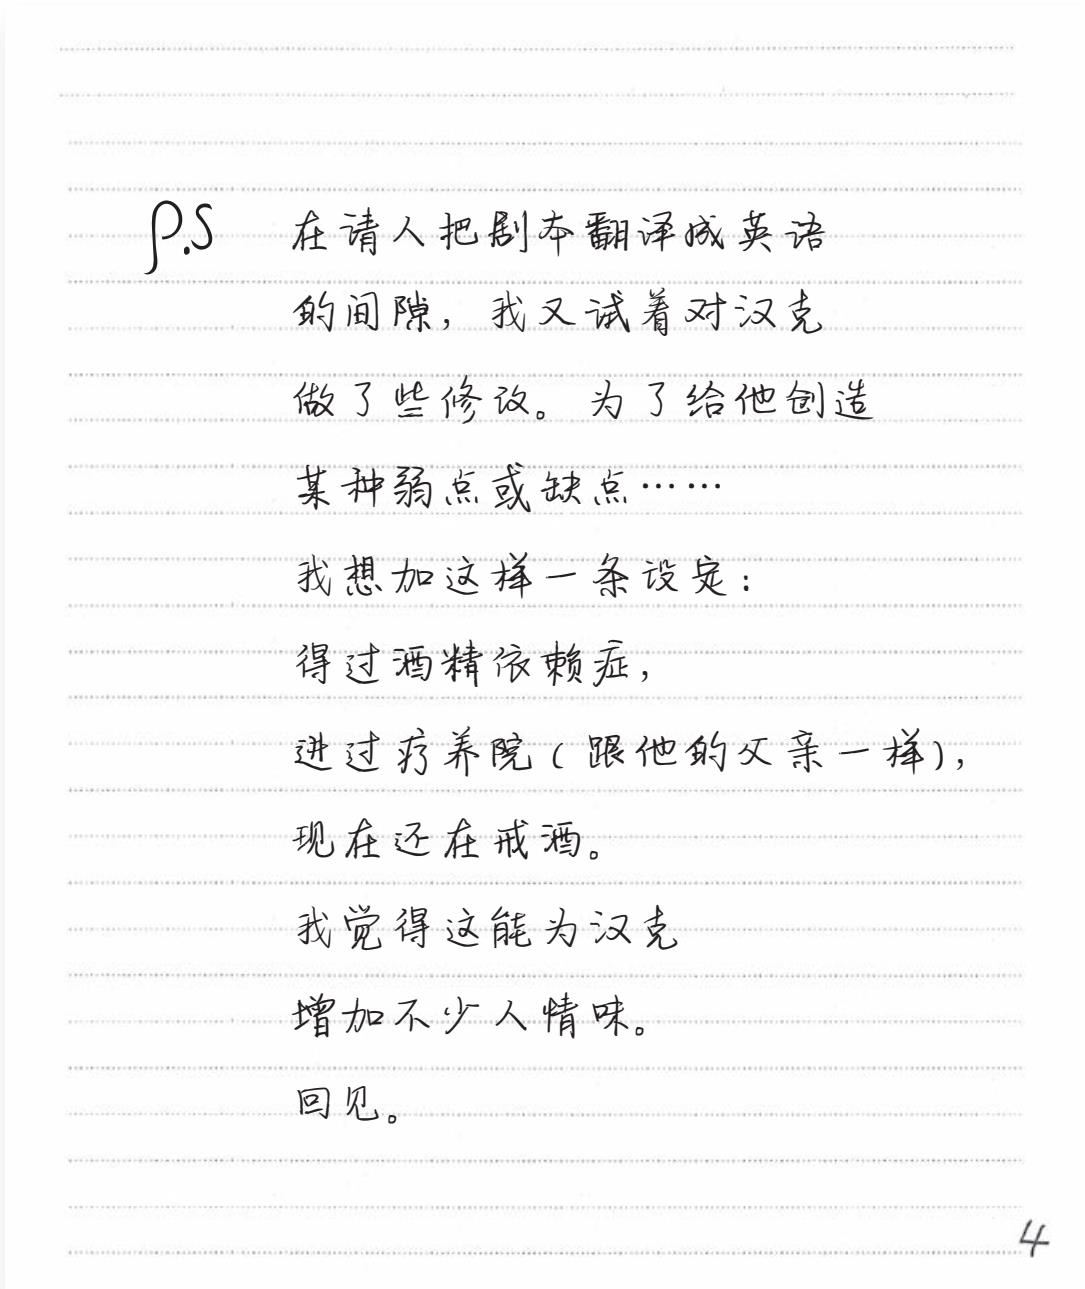 P.S 在请人把剧本翻译成英语
的间隙，我又试着对汉克
做了些修改。为了给他创造
某种弱点或缺点……
我想加这样一条设定：
得过酒精依赖症，
进过疗养院（跟他的父亲一样），
现在还在戒酒。
我觉得这能为汉克
增加不少人情味。
回见。
4